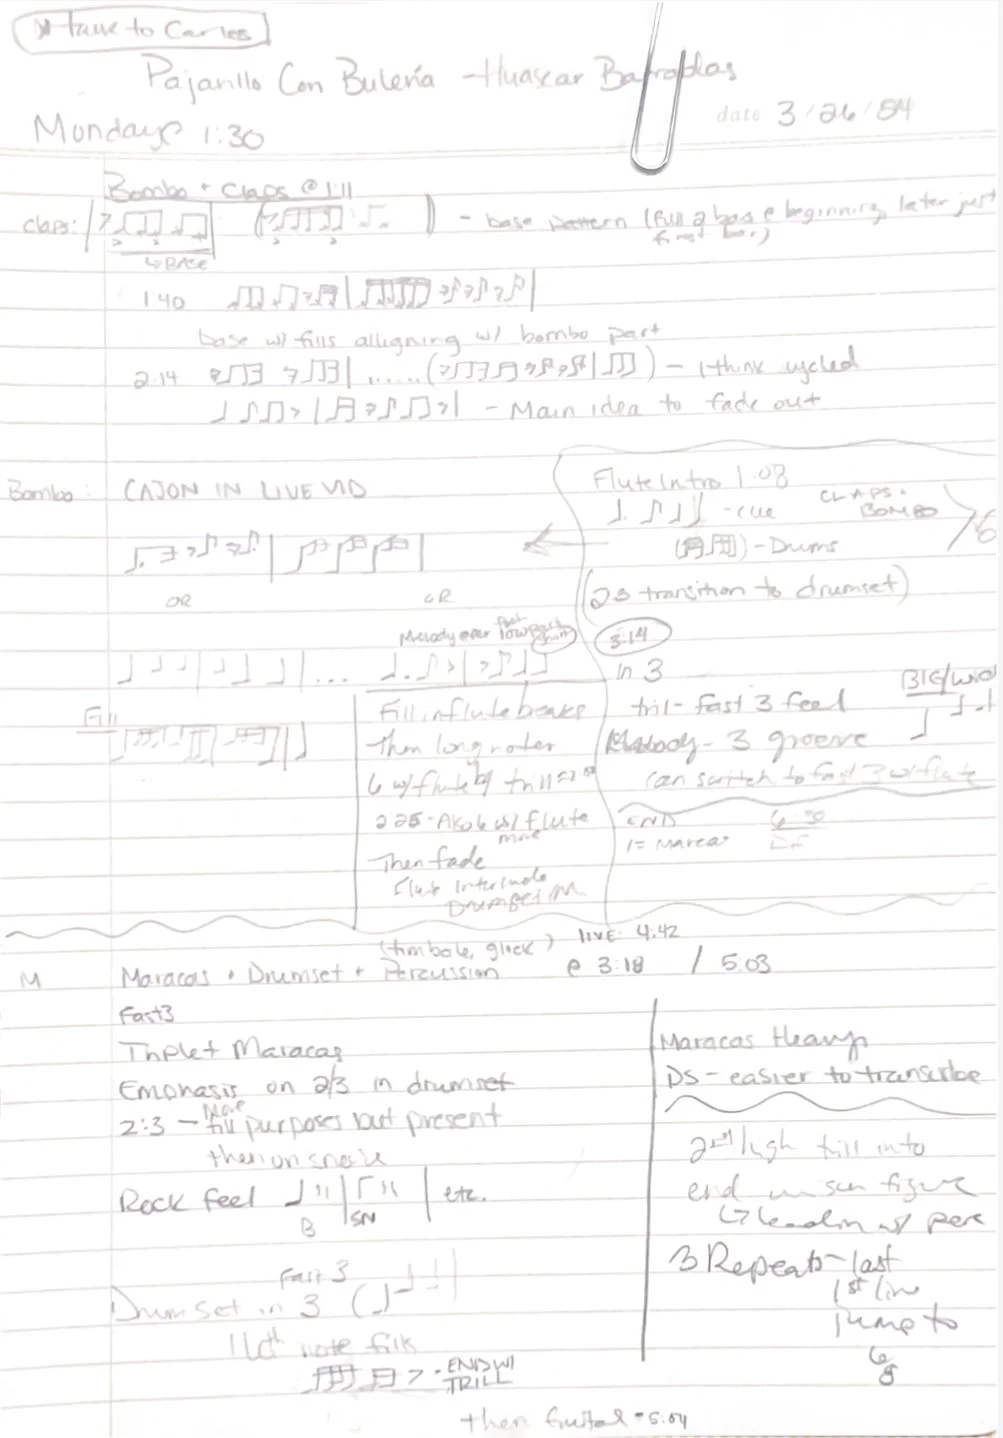 Pajarillo Con Bulería - Huascar Barradas
Mondays 1:30
date 3/26/
Bombo + Claps @ 1:11
claps: - base pattern (full 2 bars @ beginning, later just
first bar)
↳ BASE
1:40
base w/ fills alligning w/ bombo part
2:14 ...... - I think cycled
- Main idea to fade out
Bombo: CAJON IN LIVE VID
Flute Intro 1:03
- cue CLAPS + BOMBO
- Drums
OR OR
(25 transition to drumset)
Melody over
3:14
...
in 3
Fill
Fill in flute breaks
Then long notes
6 w/ flute trill
225 - Also 6 w/ flute
more
Then fade
Flute Interlude
Drumset in
trill - fast 3 feel
BIG/WID
Melody - 3 groove
can switch to fast 3 w/ flute
END
1 = Maracas
(timbale, glock) LIVE: 4:42
M Maracas + Drumset + Percussion @ 3:18 / 5:03
Fast 3
Triplet Maracas
Emphasis on 2/3 in drumset
More
2:3 - fill purposes but present
then on snare
Rock feel etc.
B SN
Fast 3
Drum Set in 3
16th note fills
END W/
TRILL
then = 5:04
Maracas Heavy
DS - easier to transcribe
2nd high trill into
end unison figure
↳ lead in w/ perc
3 Repeats - last
1st line
jump to
6
8